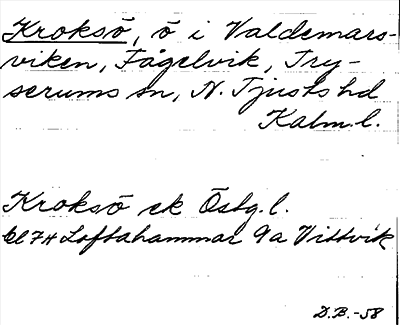 Kroksö, ö i Valdemars-
viken, Fågelvik, Try-
serums sn, N. Tjusts hd
Kalm. l.
Kroksö ek Östg. l.
Bl 74 Loftahammar 9a Vittvik
D.B. -58